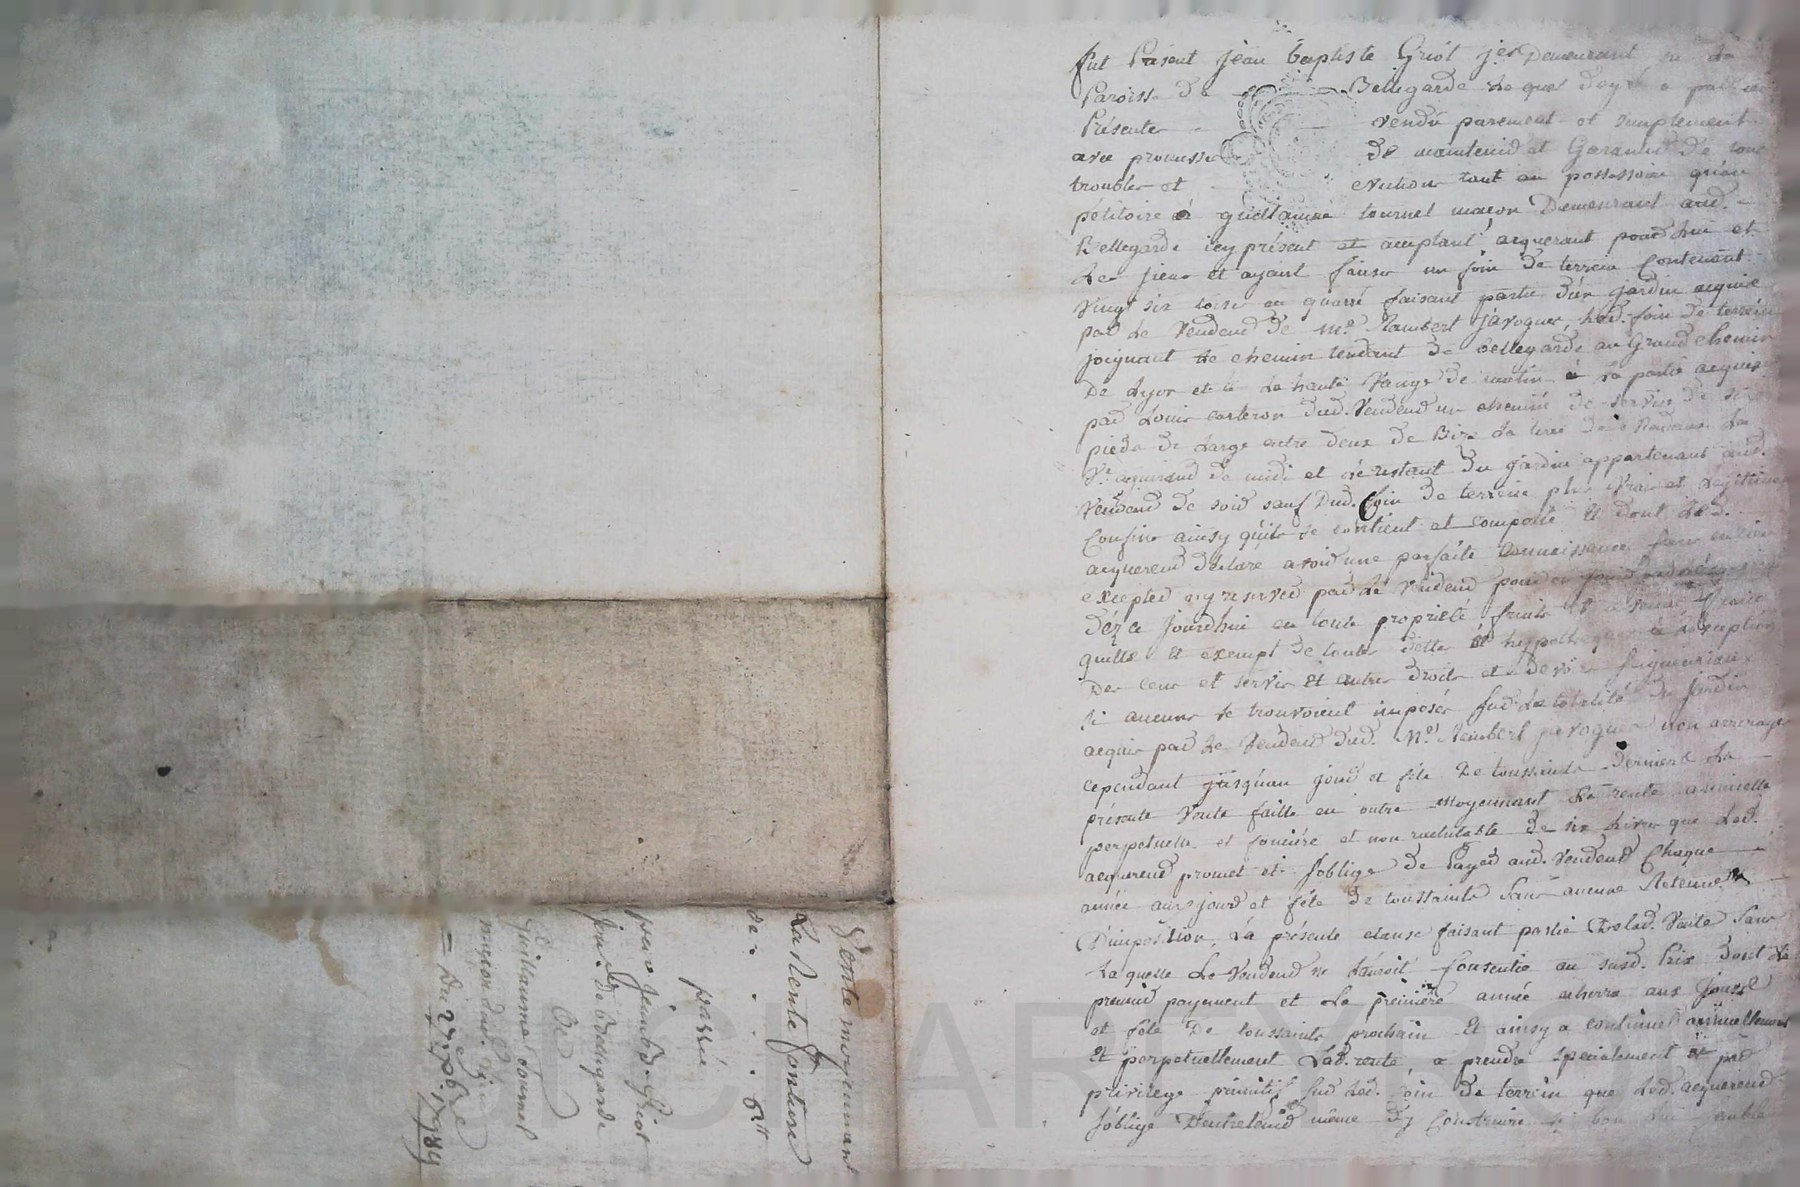 fut Présent jean baptiste Griot j.er Demeurant en la
Paroisse De Bellegarde Lequel a par ces
Présentes vendu purement et simplement
avec promesse de maintenir et Garantir De tous
troubles et evictions tant au possessoire qu'au
pétitoire à guillaume tournel maçon Demeurant aud.
Bellegarde icy présent et acceptant acquerant pour lui et
les siens et ayant cause un coin de terrein Contenant
vingt six toises en quarré faisant partie d'un jardin acquis
par le Vendeur De m.e Rambert javogues, led. coin De terrein
joignant le chemin tendant de bellegarde au Grand chemin
De Lyon et de matin la partie acquise
par Louis carteron dud. Vendeur un chemin de servis De six
pieds de Large entre deux de Bize La
acquereur de midi et le restant du jardin appartenant aud.
Vendeur De soir sauf Dud. Coin de terrein plus vrais et Legitimes
Confins ainsy qu'il se contient et comporte Et dont Led.
acquereur déclare avoir une parfaite Connaissance sans en rien
excepter ny reserver par le Vendeur pour en jouir
dez ce jourdhui en toute proprieté fruits
quitte Et exempt de toutes dettes et hypotheques à l'exception
Des cens et servis Et autres droits et devoirs seigneuriaux
si aucuns se trouvoient imposés sur La totalité du jardin
acquis par le Vendeur dud. M.e Rambert javogues non arrerages
cependant jusqu'au jour et fête De toussaints Derniers La
présente Vente faitte en outre moyennant La rente annuelle
perpetuelle et fonciére et non rachetable De six livres que Led.
acquereur promet et s'oblige de Payer aud. Vendeur Chaque
année aux jour et fête De toussaints sans aucune Retenue
D'imposition, La présente clause faisant partie Delad. Vente sans
laquelle Le Vendeur ne L'auroit Consentie au susd. Prix dont Le
premier payement et La première année echerra aux jour
et fête De toussaints prochain Et ainsy a continuer annuellement
Et perpetuellement Lad. rente, a prendre specialement et par
privilege primitif sur Led. coin De terrein que Led. acquereur
s'oblige D'entretenir même d'y Construire
Vente moyennant
La Rente fonciere
de . . . . 6ᵗᵗ
passée
par jean b.te Griot
jour. de Bellegarde
A
Guillaume Tournel
maçon dud. lieu
= Du 27. 9bre 1784